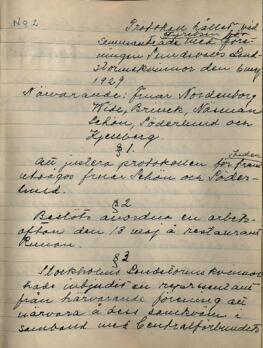 No 2
Protokoll hållet vid
styrelsen för
sammanträde med före-
ningen Sundsvalls Land-
stormskvinnor den 6 maj
1929
Närvarande: fruar Nordenborg
Wide, Brinck, Näsman
Schön, Söderlund och
Hjelberg.
§ 1.
Att justera protokollen för
utsågos fruar Schön och Söder-
lund.
§ 2
Beslöts anordna en arbets-
afton den 13 maj å restaurant
§ 3
Stockholms Landstormskvinnor
hade inbjudit en representant
från härvarande förening att
närvara å dess samkväm i
samband med Centralförbundets